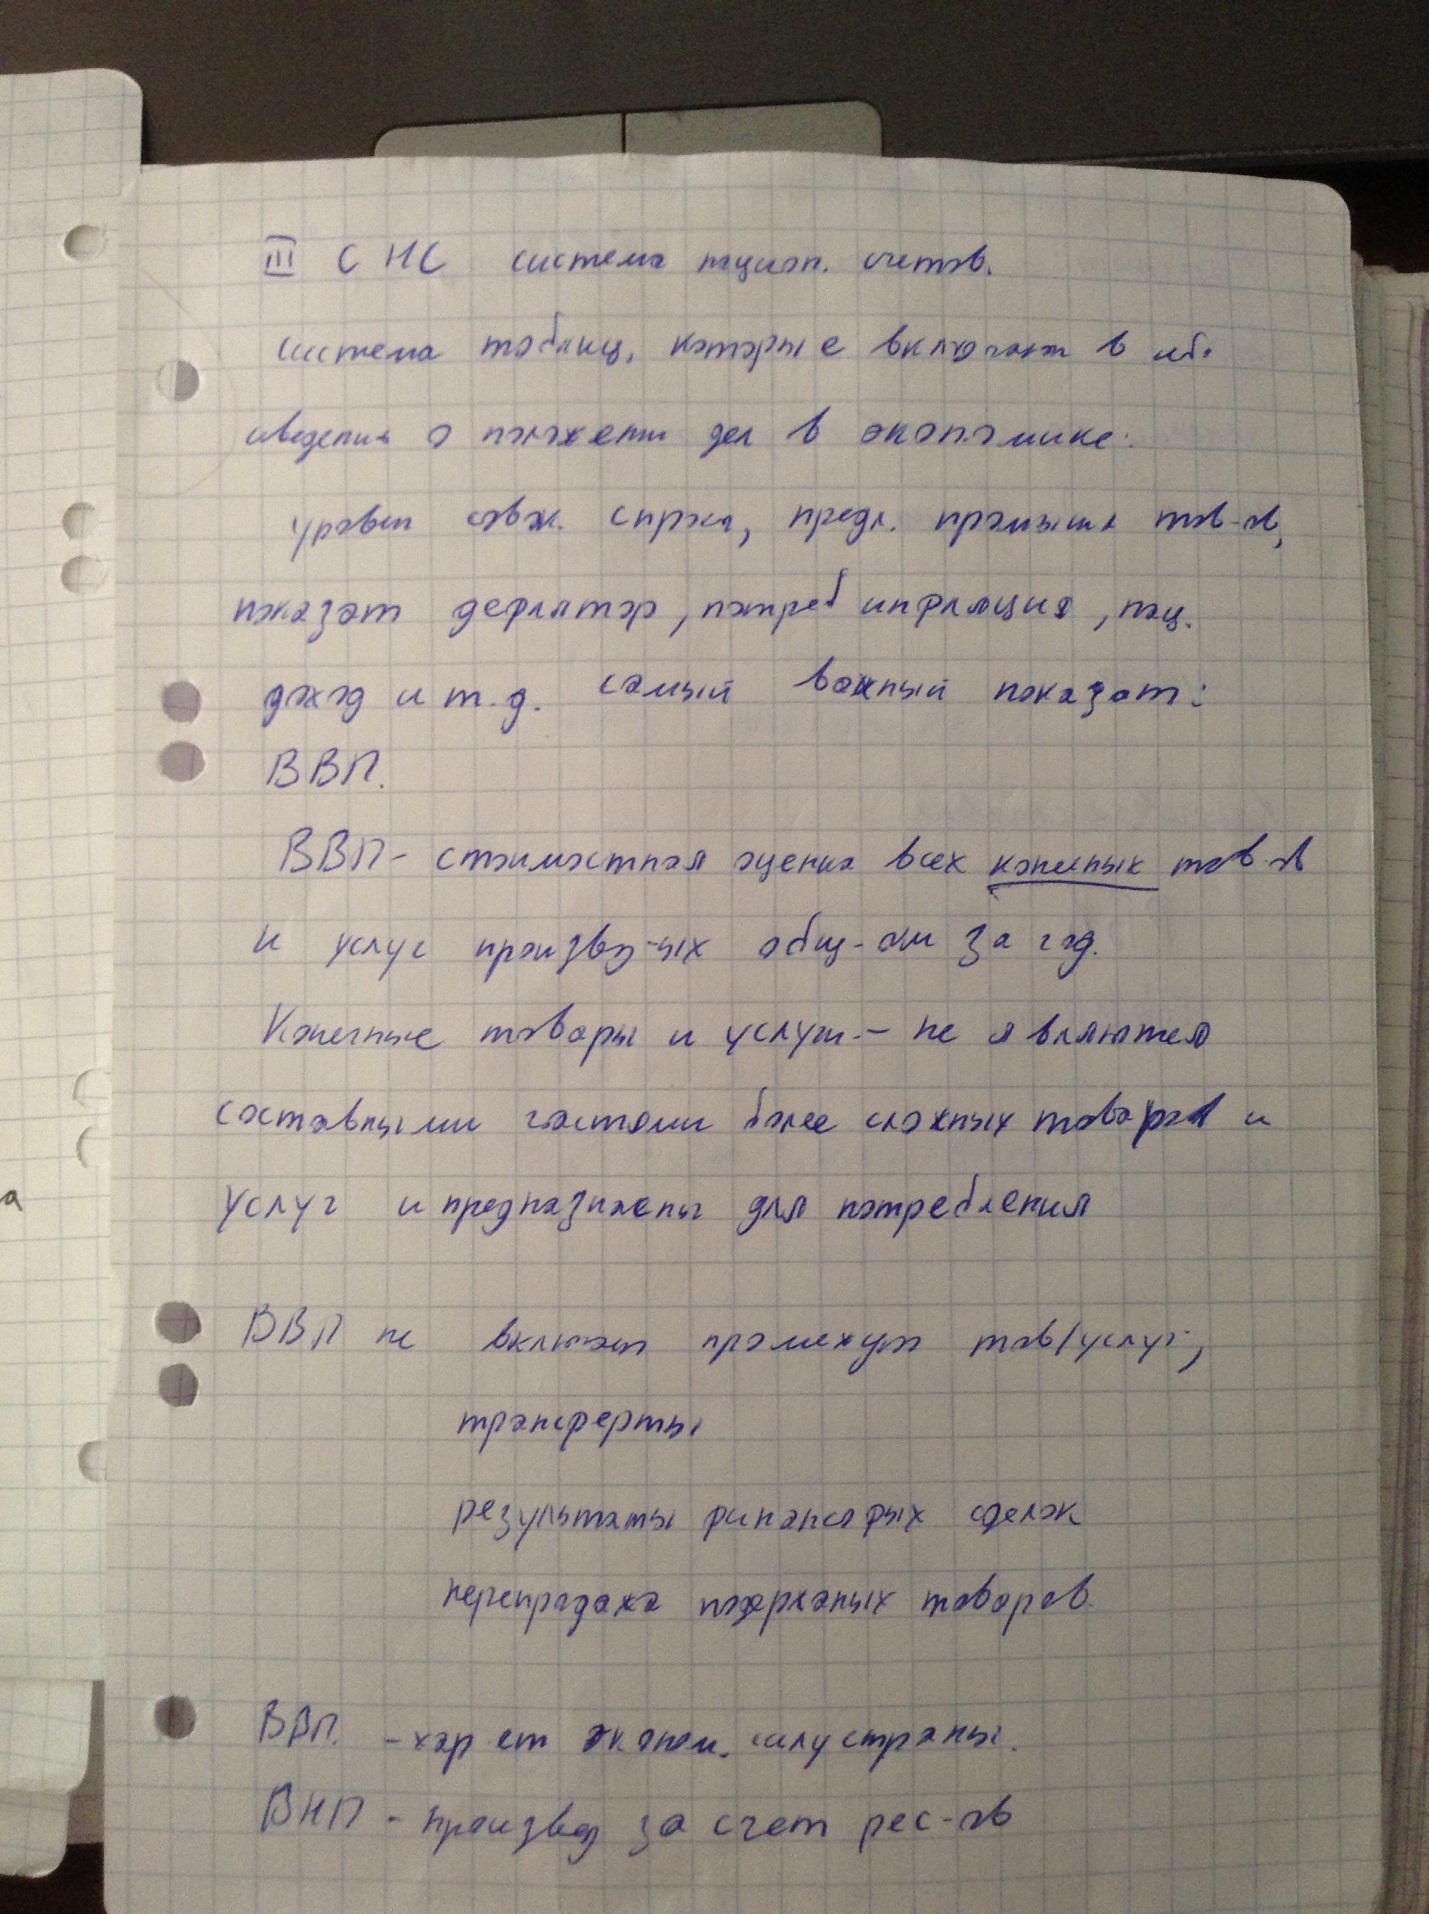 III СНС система национ. счетов.
система таблиц, которые включают в себ.
сведения о положени дел в экономике:
уровен совок. спроса, предл. промышл тов-ов,
показат дефлятор, потреб инфляция, нац.
доход и т.д. самый важный показат:
ВВП.
ВВП - стоимостная оценка всех конечных тов-ов
и услуг произвед-ых общ-ом за год.
Конечные товары и услуги - не являются
составными частями более сложных товаров и
услуг и предназначены для потребления
ВВП не включает промежут тов/услуг,
трансферты
результаты финансовых сделок
перепродажа подержаных товаров
ВВП. - хар ет эконом. силу страны.
ВНП - производ за счет рес-ов
а